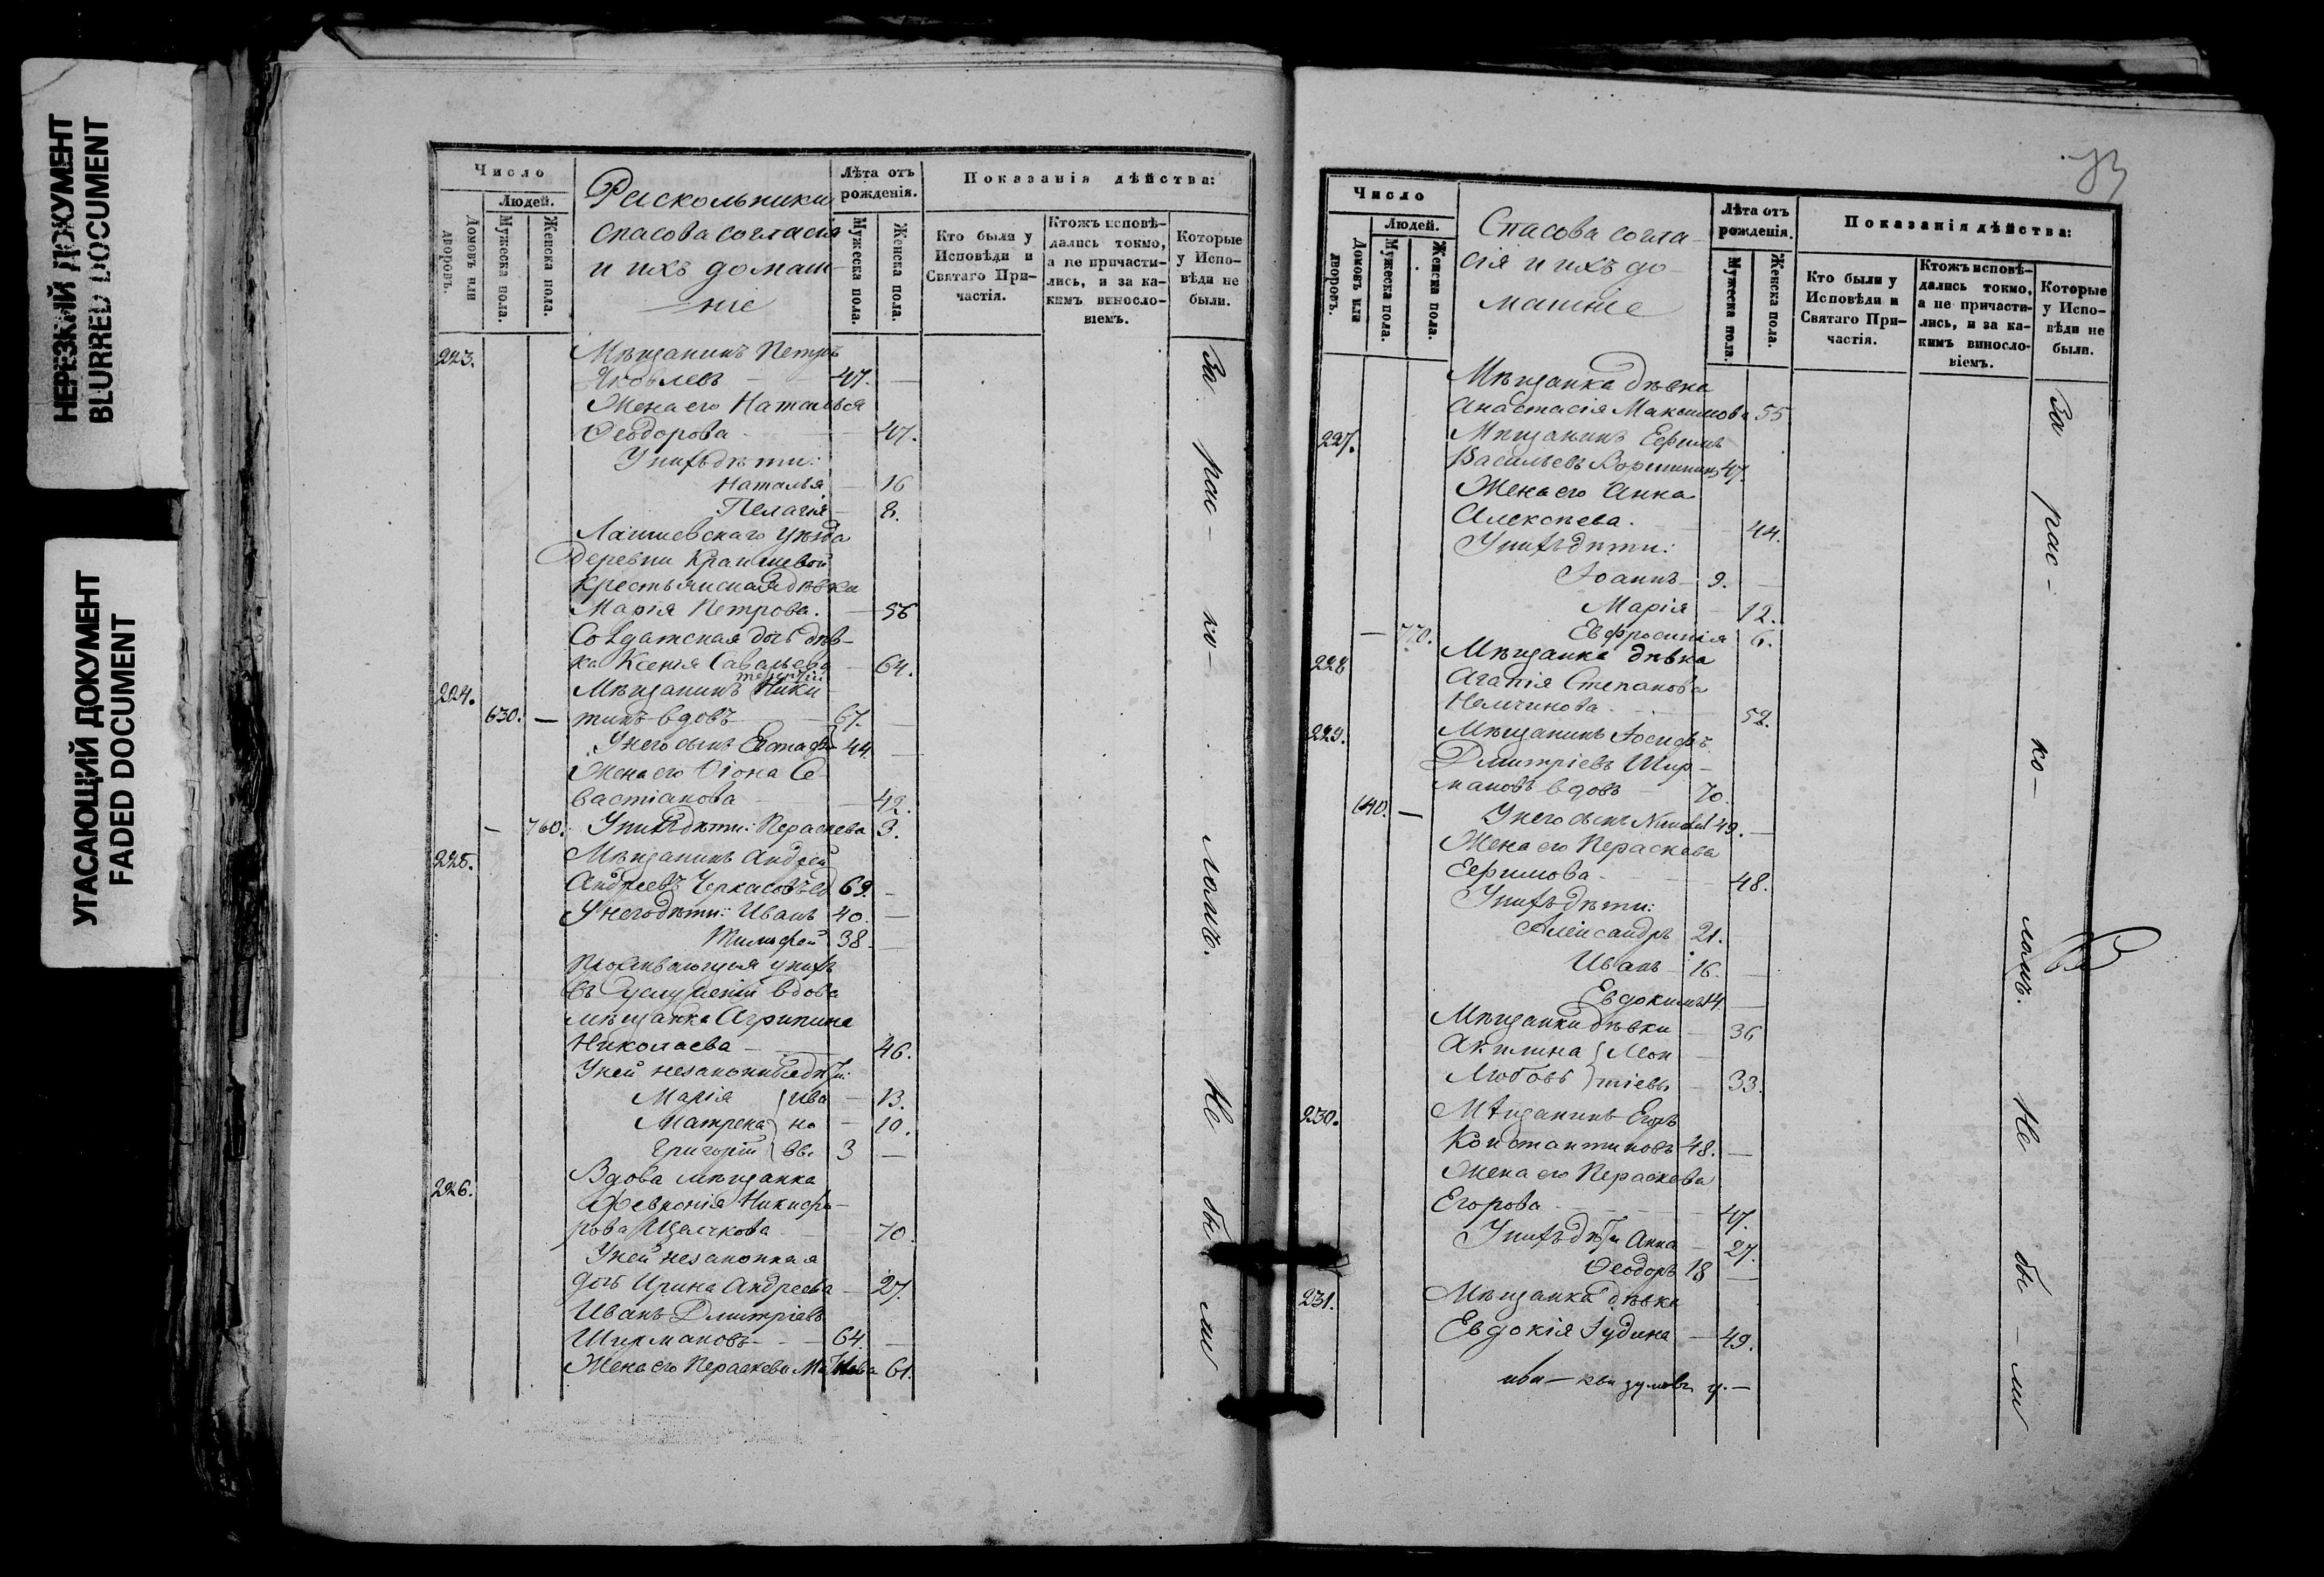 НЕРЕЗКИЙ ДОКУМЕНТ
BLURRED DOCUMENT
УГАСАЮЩИЙ ДОКУМЕНТ
FADED DOCUMENT
Число
Людей.
Домовъ или дворовъ.
Мужеска пола.
Женска пола.
Раскольники
Спасова согласія
и ихъ домаш-
ніе
Лѣта отъ рожденія.
Мужеска пола.
Женска пола.
Показанія дѣйства:
Кто были у Исповѣди и Святаго При-частія.
Ктожъ исповѣ-дались токмо, а не причасти-лись, и за ка-кимъ винослo-віемъ.
Которые у Испо-вѣди не были.
223. Мѣщанинъ Петръ
Яковлевъ — 47. —
Жена его Наталья
Ѳеодорова — 47.
У нихъ дѣти:
Наталья — 16
Пелагія — 8.
Лаишевскаго уѣзда
Деревни
крестьянская дѣвка
Марія Петрова. — 56
Солдатская дочь дѣв-
ка Ксенія Савельева — 64.
Терентій
224. Мѣщанинъ Ники
630. — тинъ вдовъ — 67. —
У него сынъ Евстафій 44. —
Жена его Ѳіона Се-
вастіанова — 42.
— 760. У нихъ дѣти: Параскева 3.
225. Мѣщанинъ Андрей
Андреевъ Черкасовъ вд 69. —
У него дѣти: Иванъ 40. —
Тимофей 38. —
Проживающая у нихъ
въ услуженіи вдова
мѣщанка Агрипина
Николаева — 46.
У ней незаконныя дѣти:
Марія } Ива — 13.
Матрена } но — 10.
Григорій } вы 3 —
226. Вдова мѣщанка
Февронія Никифо-
рова Щелчкова — 70.
У ней незаконная
дочь Ирина Андреева — 27.
Иванъ Дмитріевъ
Ширмановъ — 64. —
Жена его Параскева 61.
За рас-ко-ломъ. Не бы ли
73
Число
Людей.
Домовъ или дворовъ.
Мужеска пола.
Женска пола.
Спасова согла-
сія и ихъ до-
машніе
Лѣта отъ рожденія.
Мужеска пола.
Женска пола.
Показанія дѣйства:
Кто были у Исповѣди и Святаго При-частія.
Ктожъ исповѣ-дались токмо, а не причасти-лись, и за ка-кимъ винослo-віемъ.
Которые у Испо-вѣди не были.
Мѣщанка дѣвка
Анастасія Максимова 55
227. Мѣщанинъ Ефимъ
Васильевъ 47.
Жена его Анна
Алексѣева. — 44.
У нихъ дѣти:
Іоаннъ — 9. —
Марія — 12.
— 770. Евфросинія 6.
228 Мѣщанка дѣвка
Агапія Степанова
Немчинова. — 52.
229. Мѣщанинъ Іосифъ
Дмитріевъ Шир-
мановъ вдовъ — 70.
640. — У него сынъ 49. —
Жена его Параскева
Ефимова — 48.
У нихъ дѣти:
Александръ 21.
Иванъ — 16. —
Евдокимъ 14. —
Мѣщанки дѣвки — 36
Акилина } Меѳ —
Любовь } тіевы — 33.
230. Мѣщанинъ Егоръ
Константиновъ 48. —
Жена его Параскева
Егорова — 47.
У нихъ дѣти Анна — 27.
Ѳеодоръ 18 —
231. Мѣщанка дѣвка
Евдокія Іудина — 49.
За рас-ко-ломъ. Не бы-ли